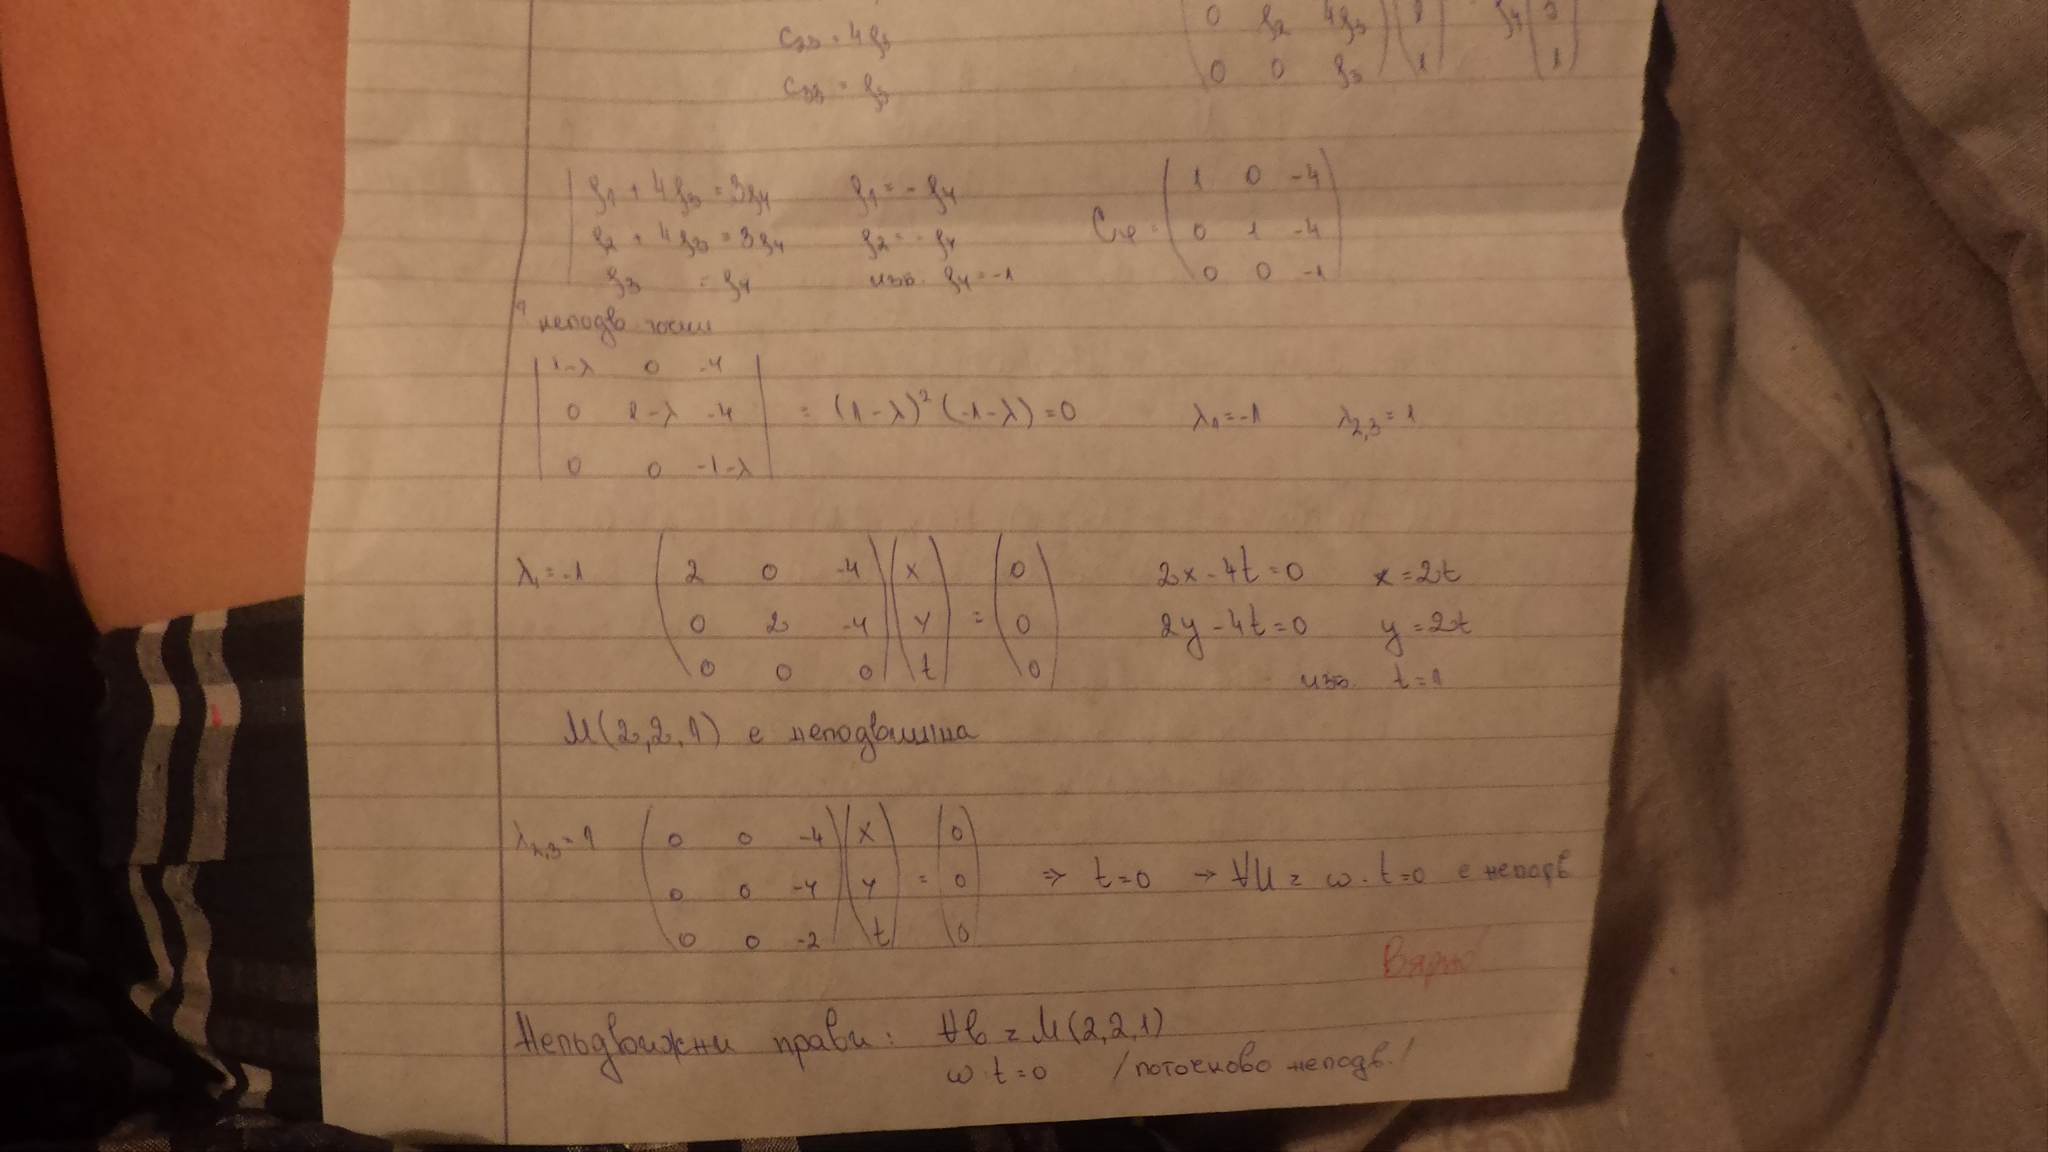 C₂₃ = 4ρ₃
C₃₃ = ρ₃
0 ρ₂ 4ρ₃
0 0 ρ₃ 1 1
ρ₁ + 4ρ₃ = 3ρ₄ ρ₁ = - ρ₄
ρ₂ + 4ρ₃ = 3ρ₄ ρ₂ = - ρ₄
ρ₃ = ρ₄ изб. ρ₄ = -1
Cφ = ( 1 0 -4
0 1 -4
0 0 -1 )
неподв. точки
| 1-λ 0 -4
0 1-λ -4
0 0 -1-λ | = (1-λ)² (-1-λ) = 0 λ₁ = -1 λ₂,₃ = 1
λ₁ = -1 ( 2 0 -4
0 2 -4
0 0 0 ) ( x
y
t ) = ( 0
0
0 )
2x - 4t = 0 x = 2t
2y - 4t = 0 y = 2t
изб. t = 1
M(2,2,1) е неподвижна
λ₂,₃ = 1 ( 0 0 -4
0 0 -4
0 0 -2 ) ( x
y
t ) = ( 0
0
0 ) ⇒ t = 0 → ∀M z ω: t = 0 е неподв
Вярно
Неподвижни прави: ∀b z M(2,2,1)
ω: t = 0 /поточково неподв./